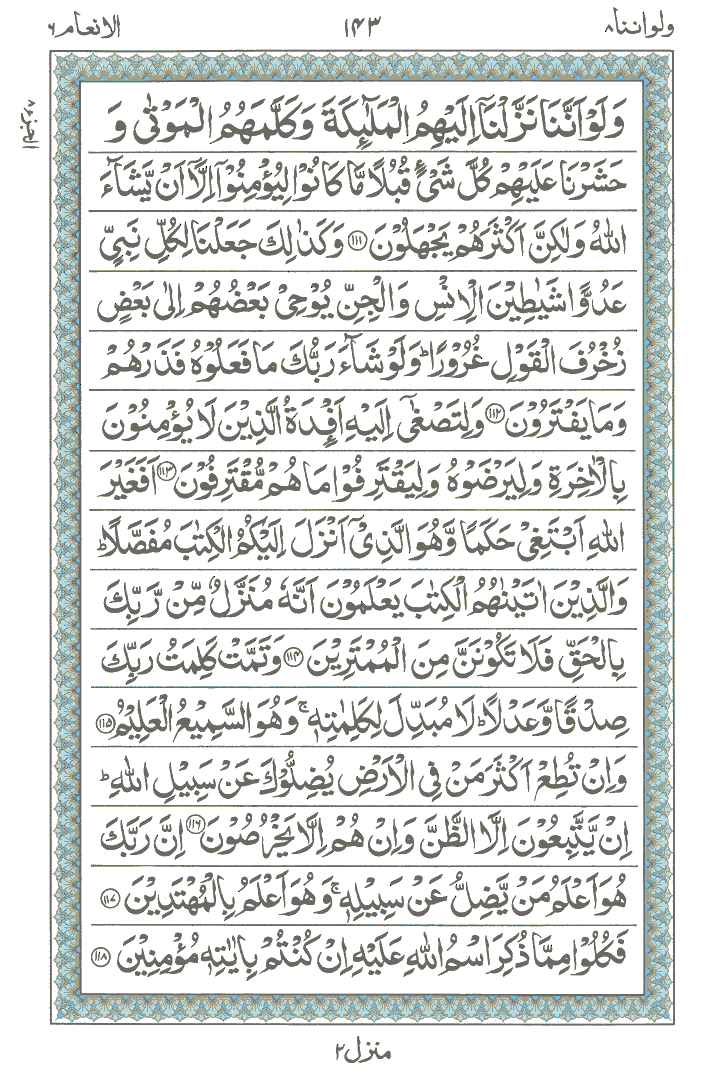 ولواننا٨ ١٤٣ الانعام٦
الجزء٨
وَلَوْ اَنَّنَا نَزَّلْنَاۤ اِلَیْهِمُ الْمَلٰٓىِٕكَةَ وَكَلَّمَهُمُ الْمَوْتٰى وَ
حَشَرْنَا عَلَیْهِمْ كُلَّ شَیْءٍ قُبُلًا مَّا كَانُوْا لِیُؤْمِنُوْۤا اِلَّاۤ اَنْ یَّشَآءَ
اللّٰهُ وَلٰكِنَّ اَكْثَرَهُمْ یَجْهَلُوْنَ ﴿١١١﴾ وَكَذٰلِكَ جَعَلْنَا لِكُلِّ نَبِیٍّ
عَدُوًّا شَیٰطِیْنَ الْاِنْسِ وَالْجِنِّ یُوْحِیْ بَعْضُهُمْ اِلٰى بَعْضٍ
زُخْرُفَ الْقَوْلِ غُرُوْرًاؕ وَلَوْ شَآءَ رَبُّكَ مَا فَعَلُوْهُ فَذَرْهُمْ
وَمَا یَفْتَرُوْنَ ﴿١١٢﴾ وَلِتَصْغٰۤى اِلَیْهِ اَفْـِٕدَةُ الَّذِیْنَ لَا یُؤْمِنُوْنَ
بِالْاٰخِرَةِ وَلِیَرْضَوْهُ وَلِیَقْتَرِفُوْا مَا هُمْ مُّقْتَرِفُوْنَ ﴿١١٣﴾ اَفَغَیْرَ
اللّٰهِ اَبْتَغِیْ حَكَمًا وَّهُوَ الَّذِیْۤ اَنْزَلَ اِلَیْكُمُ الْكِتٰبَ مُفَصَّلًاؕ
وَالَّذِیْنَ اٰتَیْنٰهُمُ الْكِتٰبَ یَعْلَمُوْنَ اَنَّهٗ مُنَزَّلٌ مِّنْ رَّبِّكَ
بِالْحَقِّ فَلَا تَكُوْنَنَّ مِنَ الْمُمْتَرِیْنَ ﴿١١٤﴾ وَتَمَّتْ كَلِمَتُ رَبِّكَ
صِدْقًا وَّعَدْلًاؕ لَا مُبَدِّلَ لِكَلِمٰتِهٖۚ وَهُوَ السَّمِیْعُ الْعَلِیْمُ ﴿١١٥﴾
وَاِنْ تُطِعْ اَكْثَرَ مَنْ فِی الْاَرْضِ یُضِلُّوْكَ عَنْ سَبِیْلِ اللّٰهِؕ
اِنْ یَّتَّبِعُوْنَ اِلَّا الظَّنَّ وَاِنْ هُمْ اِلَّا یَخْرُصُوْنَ ﴿١١٦﴾ اِنَّ رَبَّكَ
هُوَ اَعْلَمُ مَنْ یَّضِلُّ عَنْ سَبِیْلِهٖۚ وَهُوَ اَعْلَمُ بِالْمُهْتَدِیْنَ ﴿١١٧﴾
فَكُلُوْا مِمَّا ذُكِرَ اسْمُ اللّٰهِ عَلَیْهِ اِنْ كُنْتُمْ بِاٰیٰتِهٖ مُؤْمِنِیْنَ ﴿١١٨﴾
منزل٢